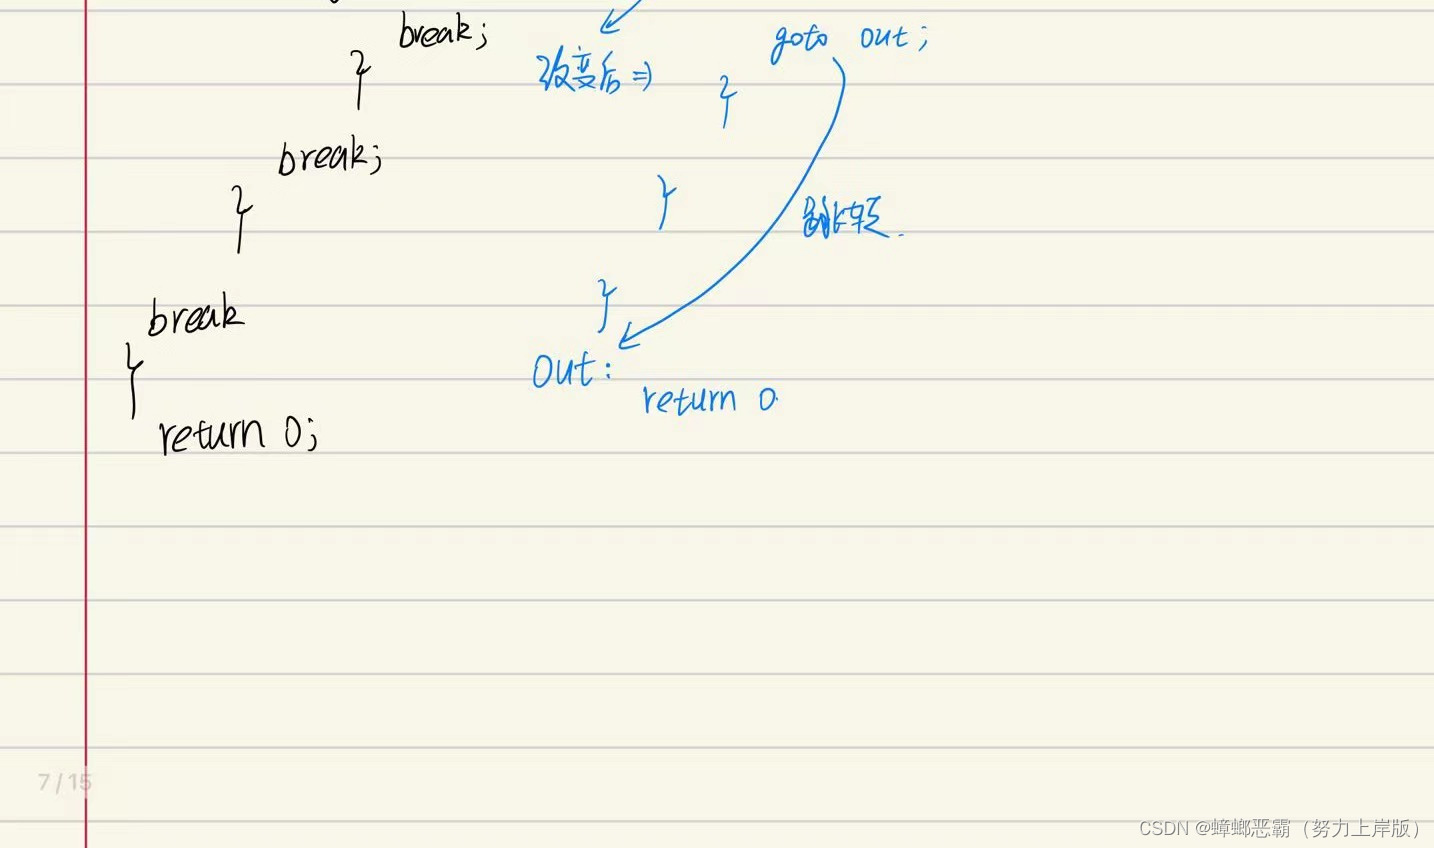 break;
}
break;
}
break
}
return 0;
改变后 =>
goto out;
}
}
跳转.
}
Out:
return 0
7 / 15
CSDN @蟑螂恶霸（努力上岸版）